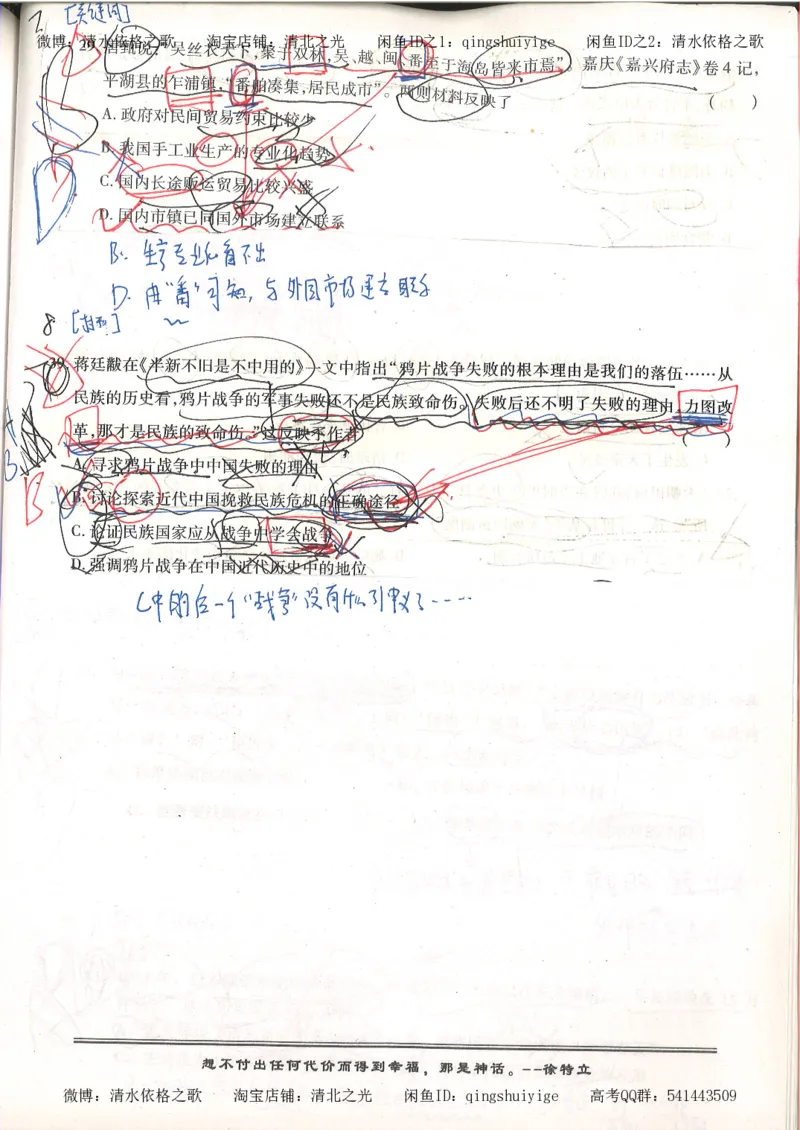 [关键词]
微博：清水依格之歌 淘宝店铺：清北之光 闲鱼ID之1：qingshuiyige 闲鱼ID之2：清水依格之歌
甄说："吴丝衣天下,聚于双林,吴、越、闽、番至于海岛皆来市焉"。嘉庆《嘉兴府志》卷4记,
平湖县的乍浦镇,"番舶凑集,居民成市"。两则材料反映了 ( )
A. 政府对民间贸易约束比较少
B. 我国手工业生产的专业化趋势
C. 国内长途贩运贸易比较兴盛
D. 国内市镇已同国外市场建立联系
B. 生产专业化看不出
D. 由"番"可知, 与外国市场建立联系
8
39. 蒋廷黻在《半新不旧是不中用的》一文中指出"鸦片战争失败的根本理由是我们的落伍……从
民族的历史看,鸦片战争的军事失败还不是民族致命伤。失败后还不明了失败的理由,力图改
革,那才是民族的致命伤。"这反映了作者 ( )
A. 寻求鸦片战争中中国失败的理由
B. 讨论探索近代中国挽救民族危机的正确途径
C. 论证民族国家应从战争中学会战争
D. 强调鸦片战争在中国近代历史中的地位
C中的后一个"战争"没有什么引申义了……
想不付出任何代价而得到幸福，那是神话。--徐特立
微博：清水依格之歌 淘宝店铺：清北之光 闲鱼ID：qingshuiyige 高考QQ群：541443509